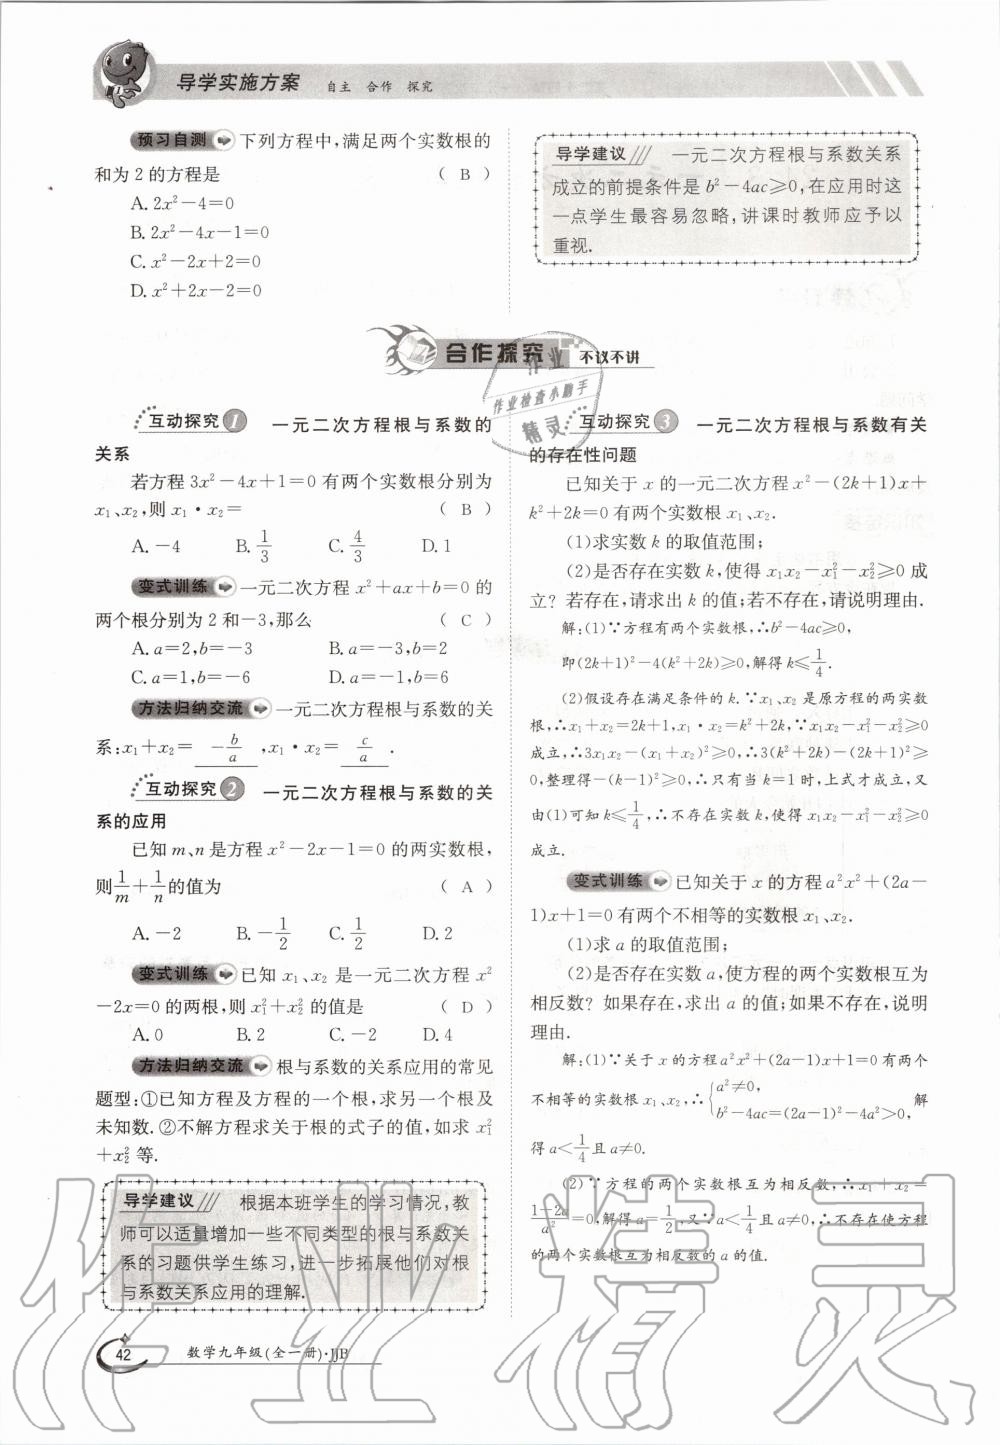 导学实施方案 自主 合作 探究
预习自测 下列方程中,满足两个实数根的
和为2的方程是 ( B )
A. 2x²－4=0
B. 2x²－4x－1=0
C. x²－2x+2=0
D. x²+2x－2=0
导学建议 一元二次方程根与系数关系
成立的前提条件是 b²－4ac≥0,在应用时这
一点学生最容易忽略,讲课时教师应予以
重视.
合作探究 不议不讲
作业
作业检查小助手
精灵
互动探究 1 一元二次方程根与系数的
关系
若方程 3x²－4x+1=0 有两个实数根分别为
x₁、x₂,则 x₁·x₂= ( B )
A. －4 B. 1/3 C. 4/3 D. 1
变式训练 一元二次方程 x²+ax+b=0 的
两个根分别为 2 和－3,那么 ( C )
A. a=2,b=－3 B. a=－3,b=2
C. a=1,b=－6 D. a=－1,b=6
方法归纳交流 一元二次方程根与系数的关
系:x₁+x₂= －b/a ,x₁·x₂= c/a .
互动探究 2 一元二次方程根与系数的关
系的应用
已知 m、n 是方程 x²－2x－1=0 的两实数根,
则 1/m + 1/n 的值为 ( A )
A. －2 B. －1/2 C. 1/2 D. 2
变式训练 已知 x₁、x₂ 是一元二次方程 x²
－2x=0 的两根,则 x₁²+x₂² 的值是 ( D )
A. 0 B. 2 C. －2 D. 4
方法归纳交流 根与系数的关系应用的常见
题型:①已知方程及方程的一个根,求另一个根及
未知数.②不解方程求关于根的式子的值,如求 x₁²
+x₂² 等.
导学建议 根据本班学生的学习情况,教
师可以适量增加一些不同类型的根与系数关
系的习题供学生练习,进一步拓展他们对根
与系数关系应用的理解.
互动探究 3 一元二次方程根与系数有关
的存在性问题
已知关于 x 的一元二次方程 x²－(2k+1)x+
k²+2k=0 有两个实数根 x₁、x₂.
(1)求实数 k 的取值范围;
(2)是否存在实数 k,使得 x₁x₂－x₁²－x₂²≥0 成
立? 若存在,请求出 k 的值;若不存在,请说明理由.
解:(1)∵方程有两个实数根,∴b²－4ac≥0,
即(2k+1)²－4(k²+2k)≥0,解得 k≤1/4.
(2)假设存在满足条件的 k.∵x₁、x₂ 是原方程的两实数
根,∴x₁+x₂=2k+1,x₁·x₂=k²+2k,∵x₁x₂－x₁²－x₂²≥0
成立,∴3x₁x₂－(x₁+x₂)²≥0,∴3(k²+2k)－(2k+1)²≥
0,整理得－(k－1)²≥0,∴只有当 k=1 时,上式才成立,又
由(1)可知 k≤1/4,∴不存在实数 k,使得 x₁x₂－x₁²－x₂²≥0
成立.
变式训练 已知关于 x 的方程 a²x²+(2a－
1)x+1=0 有两个不相等的实数根 x₁、x₂.
(1)求 a 的取值范围;
(2)是否存在实数 a,使方程的两个实数根互为
相反数? 如果存在,求出 a 的值;如果不存在,说明
理由.
解:(1)∵关于 x 的方程 a²x²+(2a－1)x+1=0 有两个
不相等的实数根 x₁、x₂,∴{a²≠0, b²－4ac=(2a－1)²－4a²>0, 解
得 a<1/4 且 a≠0.
(2)∵方程的两个实数根互为相反数,∴x₁+x₂=
(1－2a)/a²=0,解得 a=1/2,又∵a<1/4 且 a≠0,∴不存在使方程
的两个实数根互为相反数的 a 的值.
42 数学九年级(全一册)·JJB
作业精灵